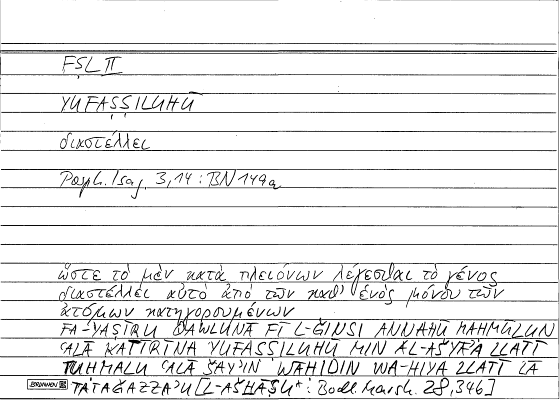 FṢL II
YUFAṢṢILUHŪ
διαστέλλει
Porph. Isag. 3,14 : BN 149a
ὥστε τὸ μὲν κατὰ πλειόνων λέγεσθαι τὸ γένος
διαστέλλει αὐτὸ ἀπὸ τῶν καθ' ἑνὸς μόνου τῶν
ἀτόμων κατηγορουμένων
FA-YAṢĪRU QAWLUNĀ FĪ L-ǦINSI ANNAHŪ MAḤMŪLUN
ʿALĀ KAṮĪRĪNA YUFAṢṢILUHŪ MIN AL-AŠYĀʾA LLATĪ
TUḤMALU ʿALĀ ŠAYʾIN WĀḤIDIN WA-HIYA LLATĪ LĀ
TATAǦAZZAʾU [L-AŠḪĀṢU* : Bodl. Marsh. 28,346]
BRUNNEN